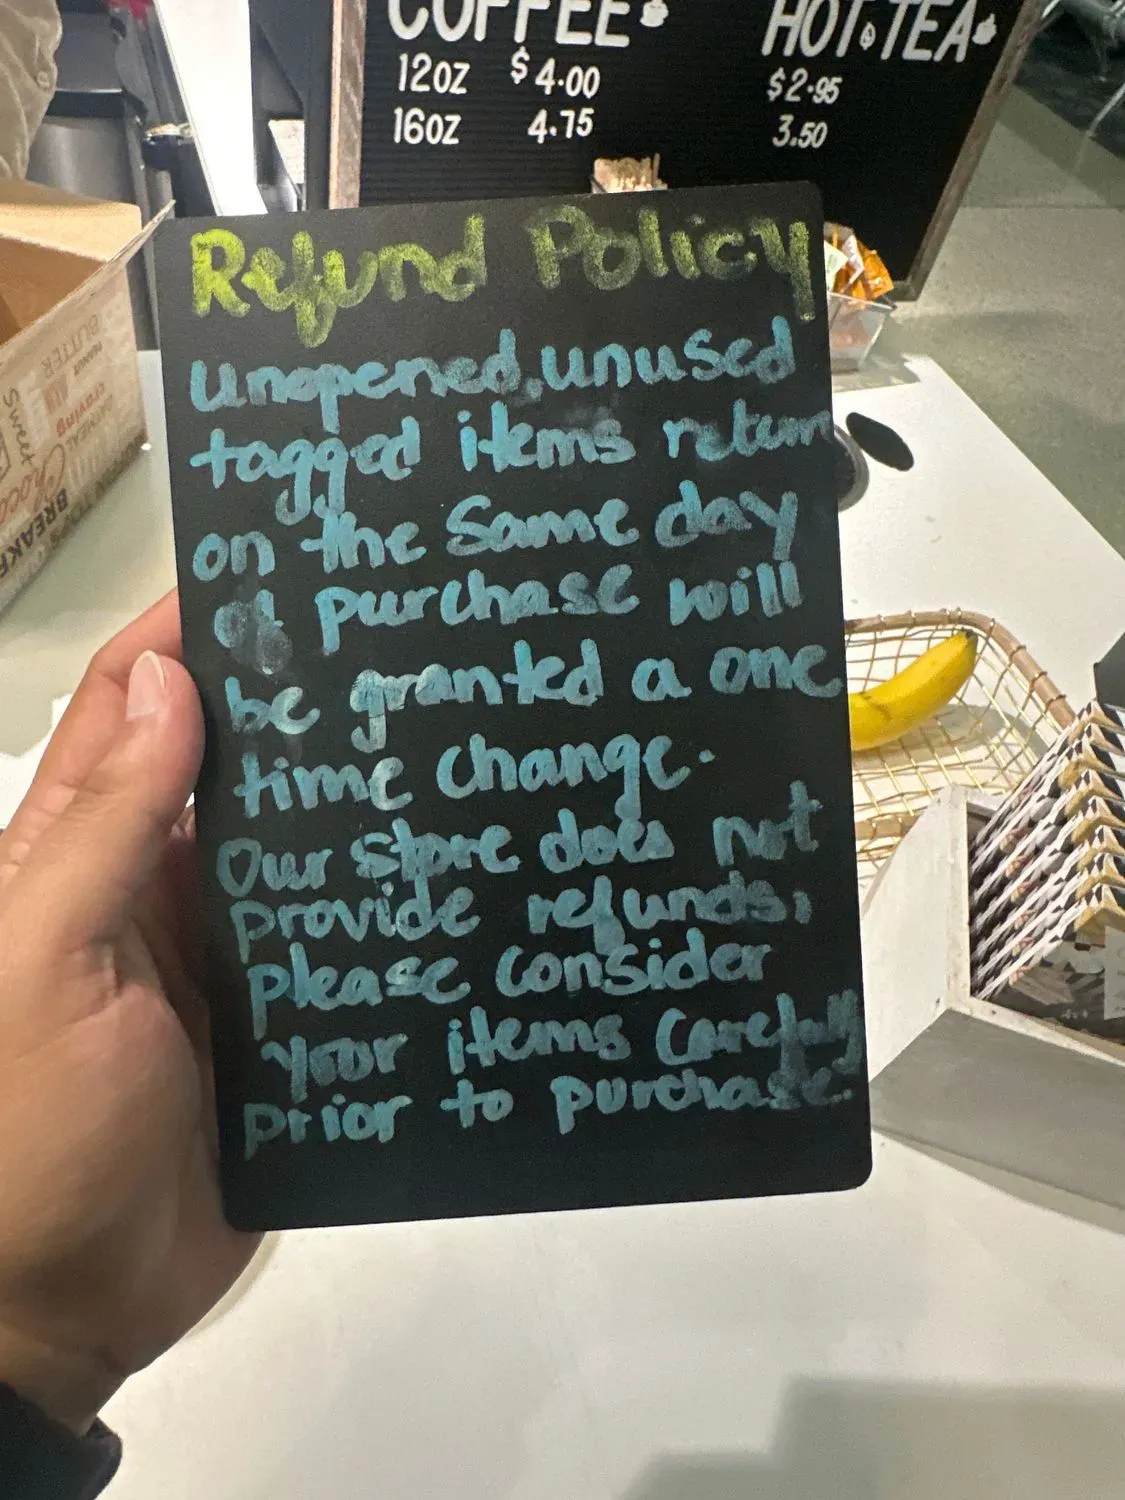 COFFEE
12OZ $4.00
16OZ 4.75
HOT TEA
$2.95
3.50
Refund Policy
Unopened, unused
tagged items return
on the same day
of purchase will
be granted a one
time change.
Our store does not
provide refunds,
please consider
your items carefully
prior to purchase.
BUTTER
Sweet
BREAKF